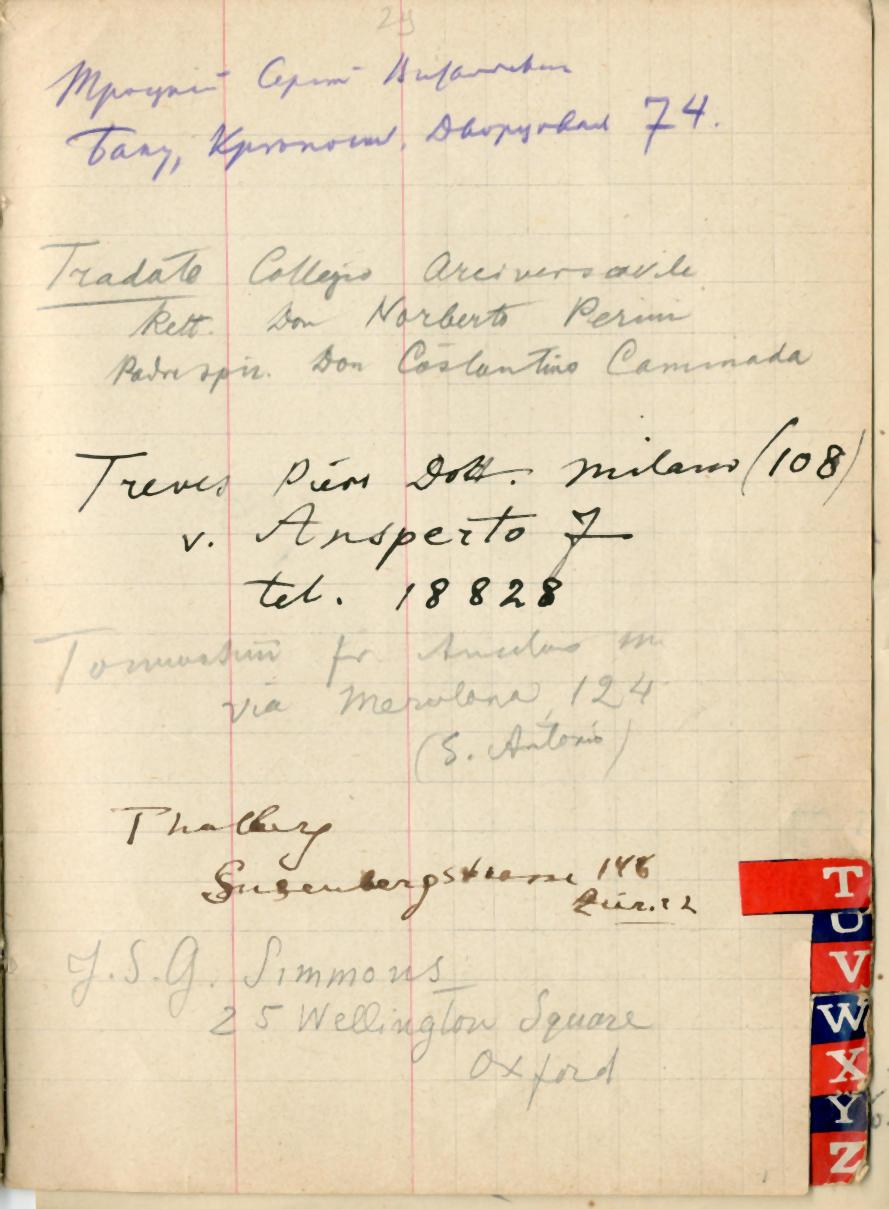 29
Троцкий Сергей Витальевич
Баку, Крепость. Дворцовая 74.
Tradate Collegio Arcivescovile
Rett. Don Norberto Perini
Padre spir. Don Costantino Caminada
Treves Piero Dott. Milano (108)
v. Ansperto 7
tel. 18828
fr m.
via Merulana, 124
(S. Antonio)
Thalberg
Susenbergstrasse 148
Zürich
J.S.G. Simmons
25 Wellington Square
Oxford
T
U
V
W
X
Y
Z